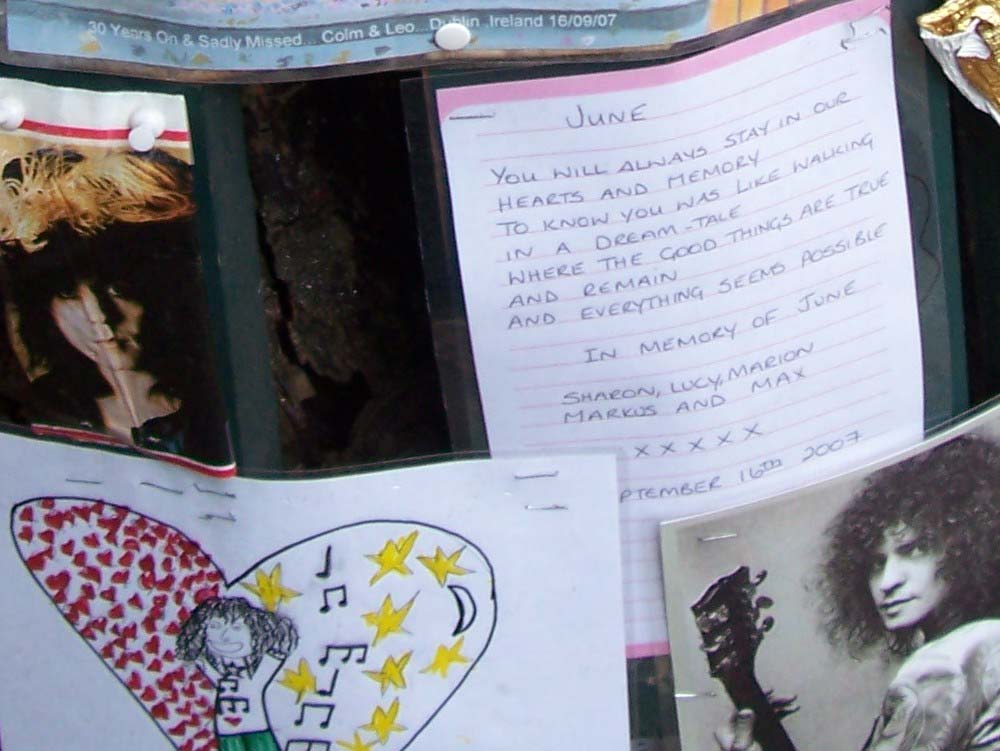 30 Years On & Sadly Missed... Colm & Leo... Dublin .Ireland 16/09/07
JUNE
YOU WILL ALWAYS STAY IN OUR
HEARTS AND MEMORY
TO KNOW YOU WAS LIKE WALKING
IN A DREAM-TALE
WHERE THE GOOD THINGS ARE TRUE
AND REMAIN
AND EVERYTHING SEEMS POSSIBLE
IN MEMORY OF JUNE
SHARON, LUCY, MARION
MARKUS AND MAX
X X X X X
PTEMBER 16TH 2007